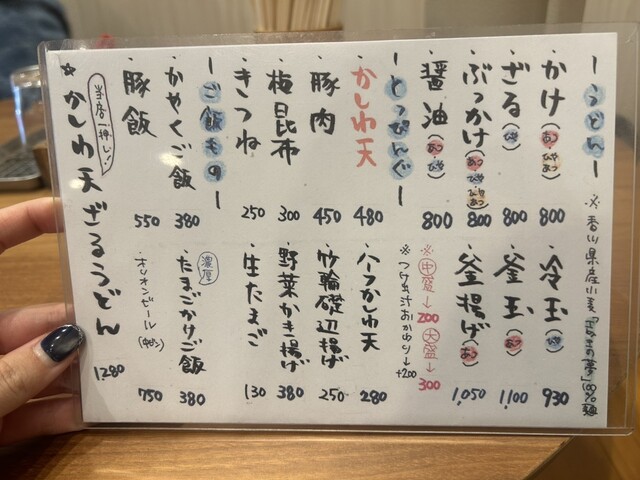 ーうどんー
※香川県産小麦「さぬきの夢」100%麺
・かけ(あつ ひや ひやあつ) 800
・ざる(ひや) 800
・ぶっかけ(あつ ひや ひやあつ) 800
・醤油(あつ ひや) 800
・冷玉(ひや) 930
・釜玉(あつ) 1,100
・釜揚げ(あつ) 1,050
※中盛→200 大盛→300
※つけ出汁おかわり→+200
ーとっぴんぐー
・かしわ天 480
・豚肉 450
・梅昆布 300
・きつね 250
・ハーフかしわ天 280
・竹輪磯辺揚げ 250
・野菜かき揚げ 380
・生たまご 130
ーご飯ものー
・かやくご飯 380
・豚飯 550
濃厚
・たまごかけご飯 380
・オリオンビール(中ビン) 750
当店一押し!
*かしわ天ざるうどん 1280